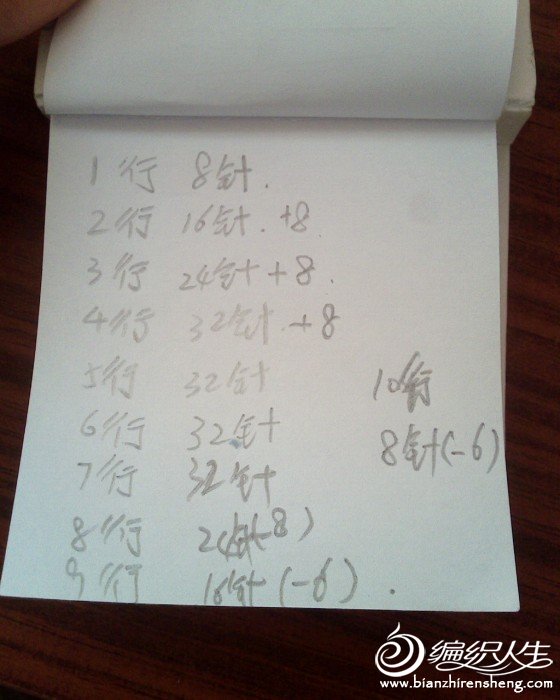 1行 8针.
2行 16针.+8.
3行 24针+8.
4行 32针.+8
5行 32针
6行 32针
7行 32针
8行 24针(-8)
9行 16针(-6).
10行
8针(-6)
编织人生
www.bianzhirensheng.com